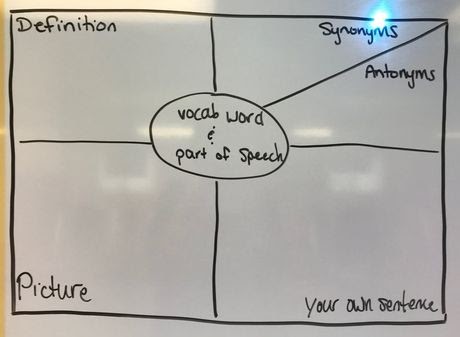 Definition
Synonyms
Antonyms
vocab word
&
part of speech
Picture
Your own sentence